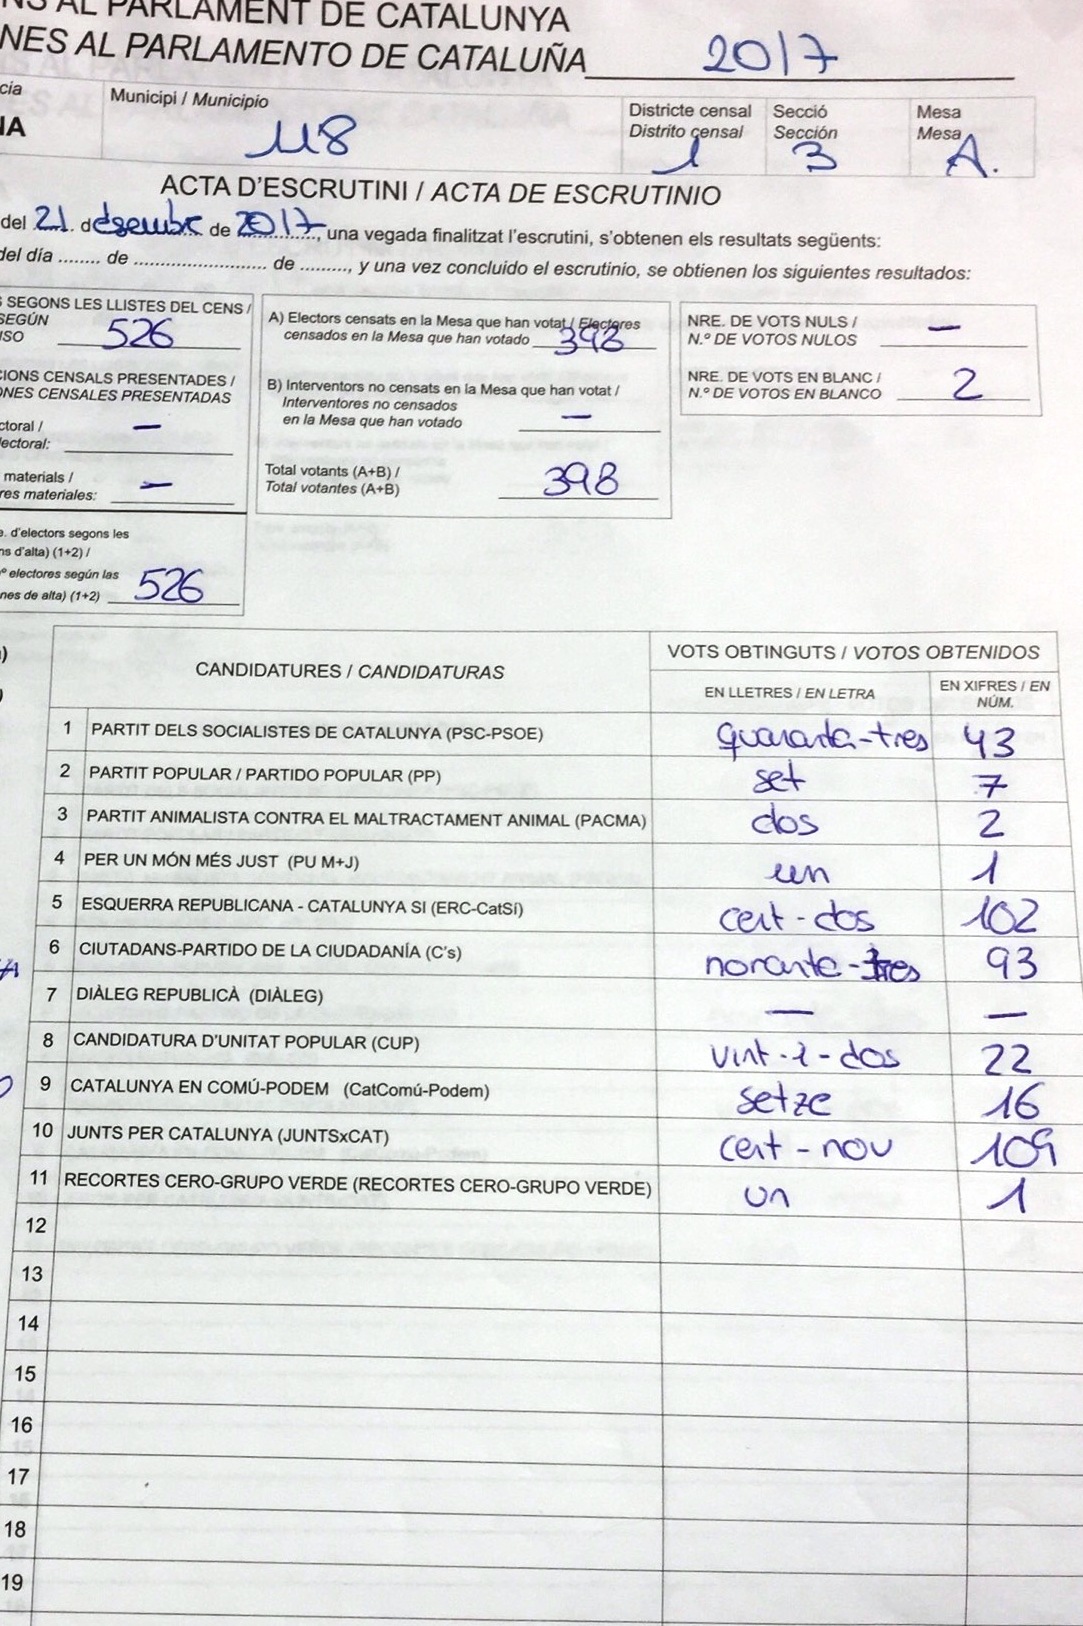 NS AL PARLAMENT DE CATALUNYA
NES AL PARLAMENTO DE CATALUÑA 2017
cia
NA
Municipi / Municipio
118
Districte censal
Distrito censal
1
Secció
Sección
3
Mesa
Mesa
A.
ACTA D'ESCRUTINI / ACTA DE ESCRUTINIO
del 21 d desembre de 2017, una vegada finalitzat l'escrutini, s'obtenen els resultats següents:
del día ........ de ........................ de ........., y una vez concluido el escrutinio, se obtienen los siguientes resultados:
S SEGONS LES LLISTES DEL CENS /
SEGÚN
NSO 526
CIONS CENSALS PRESENTADES /
ONES CENSALES PRESENTADAS
ctoral / —
lectoral:
materials / —
res materiales:
e. d'electors segons les
ns d'alta) (1+2) /
nº electores según las
nes de alta) (1+2) 526
A) Electors censats en la Mesa que han votat / Electores
censados en la Mesa que han votado 398
B) Interventors no censats en la Mesa que han votat /
Interventores no censados
en la Mesa que han votado —
Total votants (A+B) /
Total votantes (A+B) 398
NRE. DE VOTS NULS / —
N.º DE VOTOS NULOS
NRE. DE VOTS EN BLANC / 2
N.º DE VOTOS EN BLANCO
CANDIDATURES / CANDIDATURAS
VOTS OBTINGUTS / VOTOS OBTENIDOS
EN LLETRES / EN LETRA
EN XIFRES / EN
NÚM.
1 PARTIT DELS SOCIALISTES DE CATALUNYA (PSC-PSOE) quaranta-tres 43
2 PARTIT POPULAR / PARTIDO POPULAR (PP) set 7
3 PARTIT ANIMALISTA CONTRA EL MALTRACTAMENT ANIMAL (PACMA) dos 2
4 PER UN MÓN MÉS JUST (PU M+J) un 1
5 ESQUERRA REPUBLICANA - CATALUNYA SI (ERC-CatSí) cent-dos 102
6 CIUTADANS-PARTIDO DE LA CIUDADANÍA (C's) noranta-tres 93
7 DIÀLEG REPUBLICÀ (DIÀLEG) — —
8 CANDIDATURA D'UNITAT POPULAR (CUP) vint-i-dos 22
9 CATALUNYA EN COMÚ-PODEM (CatComú-Podem) setze 16
10 JUNTS PER CATALUNYA (JUNTSxCAT) cent-nou 109
11 RECORTES CERO-GRUPO VERDE (RECORTES CERO-GRUPO VERDE) un 1
12
13
14
15
16
17
18
19